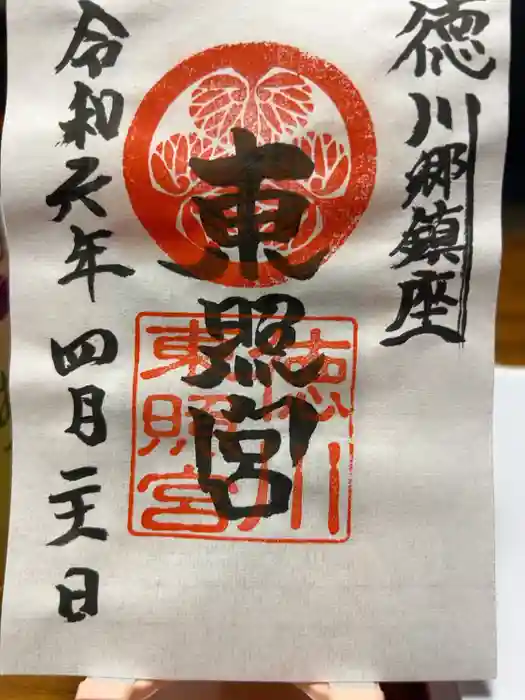 徳川郷鎮座
東照宮
徳川
東照宮
令和六年 四月二十日